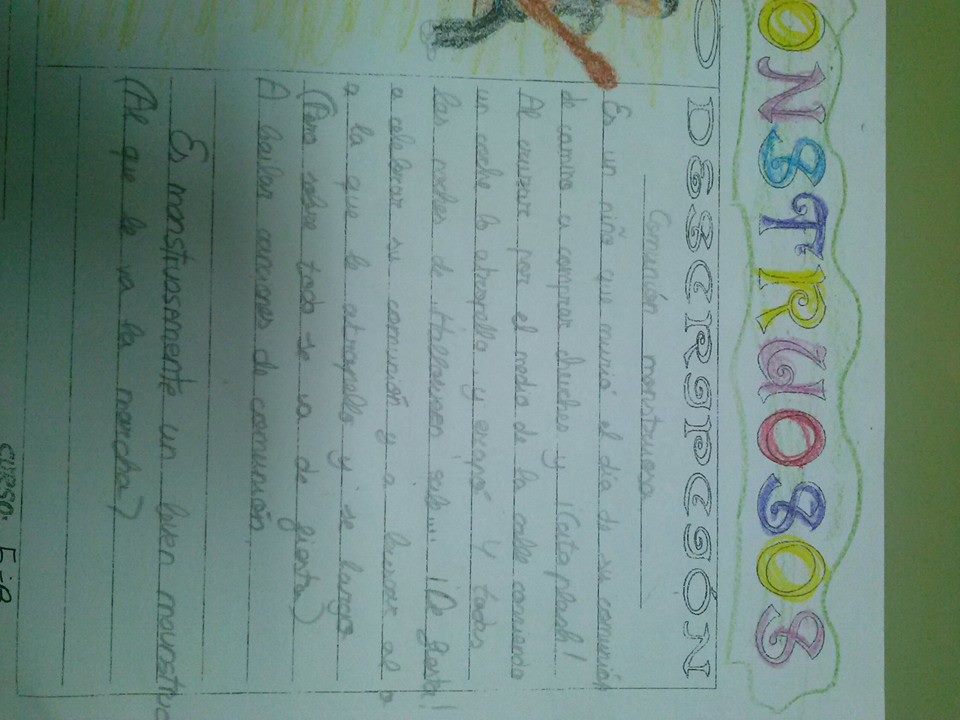 ONSTRUOSOS
O DESCRIPCIÓN
Comunión monstruosa
Es un niño que murió el día de su comunión
de camino a comprar chuches y ¡Cataplash!
Al cruzar por el medio de la calle corriendo
un coche lo atropelló y escapó y todas
las noches de Halloween sale... ¡De fiesta!
a celebrar su comunión y a buscar al o
a la que le atropelló y se largo
(Pero sobre todo se va de fiesta)
A bailar canciones de comunión.
Es monstruosamente un buen monstruo
(Al que le va la marcha)
CURSO: 5º B